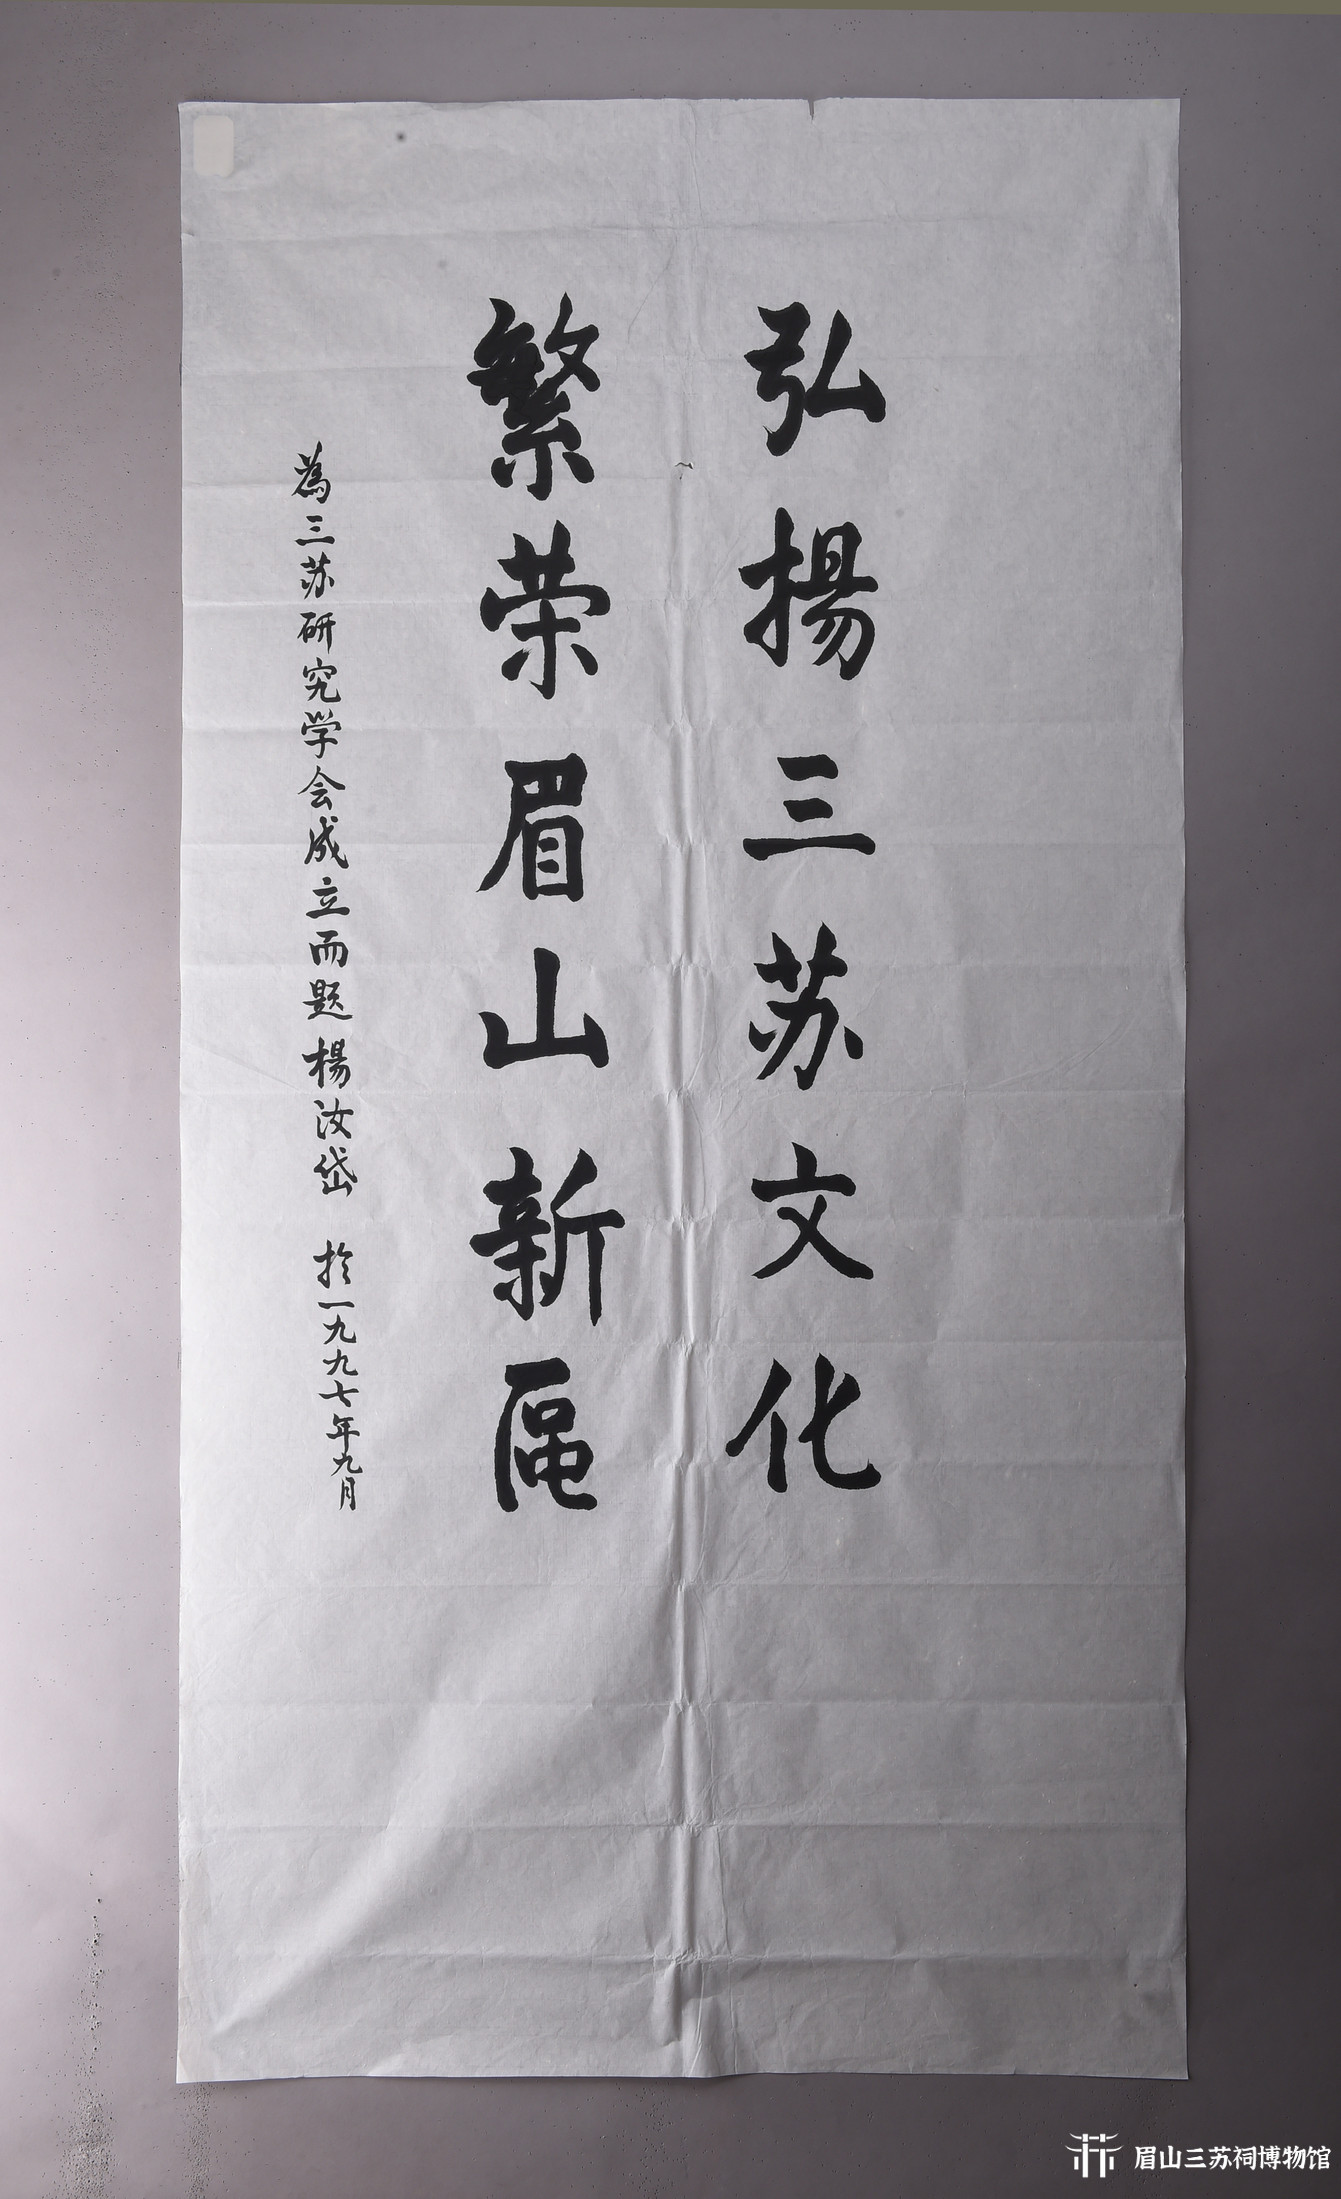 弘揚三苏文化
繁荣眉山新區
為三苏研究学会成立而题 楊汝岱 於一九九七年九月
眉山三苏祠博物馆